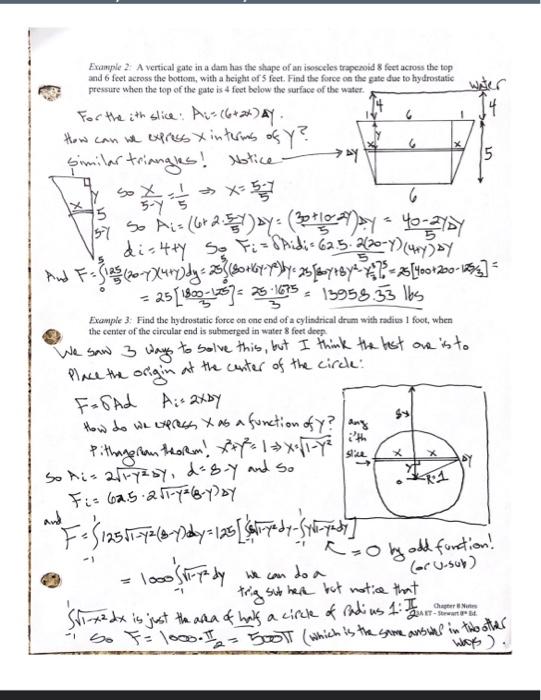 Example 2: A vertical gate in a dam has the shape of an isosceles trapezoid 8 feet across the top
and 6 feet across the bottom, with a height of 5 feet. Find the force on the gate due to hydrostatic
pressure when the top of the gate is 4 feet below the surface of the water.
water
4
4
6
1
For the ith slice: Ai=(6+2x)Δy.
How can we express x in terms of y?
Similar triangles! Notice
Δy
y
6
x
5
6
x
y
5
5-y
So x/(5-y) = 1/5 ⇒ x = (5-y)/5
So Ai=(6+2·(5-y)/5)Δy = ((30+10-2y)/5)Δy = (40-2y)/5 Δy
di=4+y So Fi=δAidi=62.5·2(20-y)/5 (4+y)Δy
And F=∫₀⁵ 125/5 (20-y)(4+y)dy=25∫₀⁵(80+16y-y²)dy=25[80y+8y²-y³/3]₀⁵=25[400+200-125/3]=
=25[(1800-125)/3]= 25·1675/3 = 13958.33 lbs
Example 3: Find the hydrostatic force on one end of a cylindrical drum with radius 1 foot, when
the center of the circular end is submerged in water 8 feet deep.
We saw 3 ways to solve this, but I think the best one is to
Place the origin at the center of the circle:
F=δAd Ai=2xΔy
How do we express x as a function of y?
Pythagorean theorem! x²+y²=1 ⇒ x=√(1-y²)
any
i'th
slice
8-y
x
x
Δy
y
0
R=1
So Ai=2√(1-y²)Δy, d=8-y and so
Fi=62.5·2√(1-y²)(8-y)Δy
and
F=∫₋₁¹125√(1-y²)(8-y)dy=125[∫₋₁¹8√(1-y²)dy-∫₋₁¹y√(1-y²)dy]
=0 by odd function!
(or U-sub)
=1000∫₋₁¹√(1-y²)dy we can do a
trig sub here but notice that
∫₋₁¹√(1-x²)dx is just the area of half a circle of radius 1: π/2
Chapter 8 Notes
Stewart 8th Ed.
So F=1000·π/2 = 500π (which is the same answer in the other
ways).